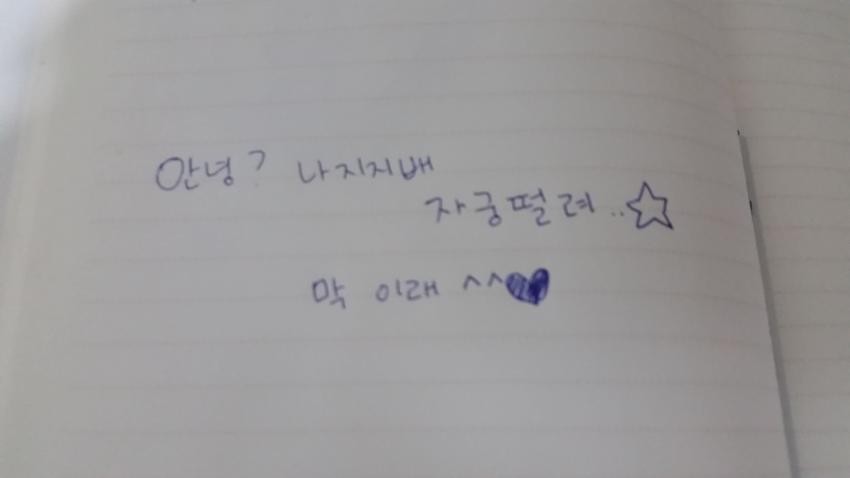 안녕? 나지지배
자궁떨려..☆
막 이래 ^^♥